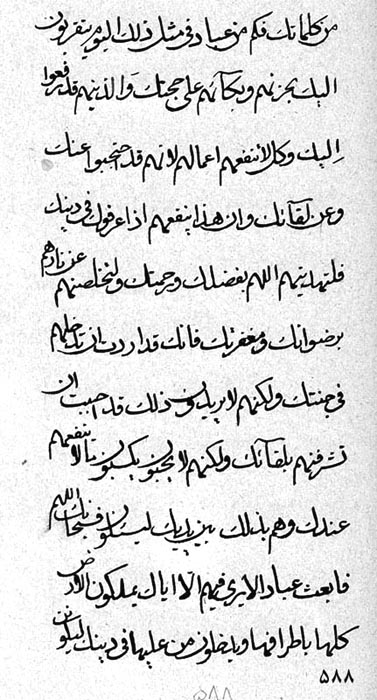 من كلماتك فكم من عباد في مثل ذلك اليوم يتقربون
اليك بحزنهم وبكائهم على حجتك والذينهم قد رفعوا
اليك وكل لا ينفعهم اعمالهم لانهم قد احتجبوا عنك
وعن لقائك وان هذا ينفعهم اذا عرفوك في دينك
فلتهدينهم اللهم بفضلك ورحمتك ولتخلصنهم عن نارهم
برضوانك ومغفرتك فانك قد اردت ان تدخلهم
في جنتك ولكنهم لا يريدون ذلك قد احببت ان
تشرفنهم بلقائك ولكنهم لا يحبون يكسبون ما لا ينفعهم
عندك وهم بذلك بين يديك ليسئلون فسبحانك اللهم
فابعث عبادا لا يرى فيهم الا اياك يملكون الارض
كلها باطرافها ويدخلون من عليها في دينك ليكون
٥٨٨
٥٨٨